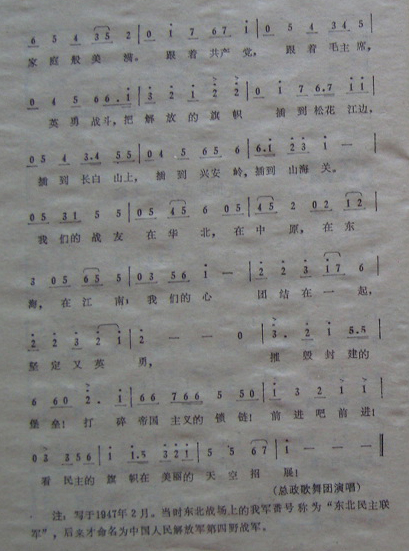 6 5 4 3 5 2 | 0 i 7 6 7 i | 0 5 4 3 4 5 |
家 庭 般 美 满。 跟 着 共产 党, 跟 着 毛主 席,
0 4 5 6 6 . i | 3 2 i 2 2 | 0 i 7 6.7 i i |
英 勇 战 斗, 把 解 放 的 旗 帜 插 到 松花 江边,
0 5 4 3.4 5 5 | 0 4 5 6 5 6 | 6.i 2 3 i — |
插 到 长白 山上, 插 到 兴安 岭, 插到 山海 关。
0 5 3 1 5 5 | 0 5 4 5 6 5 | 4 5 2 0 2 1 2 |
我 们的 战 友 在 华 北, 在 中 原, 在 东
3 0 5 6 5 5 | 0 3 5 6 i — | 2 2 3 i 7 6 |
海, 在 江 南; 我 们的 心 团 结 在 一 起,
2 2 3 2 i | 2 — — 0 | 3 . 2 i 5.5 |
坚 定 又 英 勇, 摧 毁 封 建的
6 6 0 2 . i | 6 6 7 6 6 5 5 0 | i 3 2 i i |
堡 垒! 打 碎 帝国 主义的 锁 链! 前 进 吧 前 进!
0 3 3 5 6 i | i i.5 3 2 i | 5 5 6 7 | i — — — |
看 民主的 旗 帜在 美丽的 天 空 招 展!
(总政歌舞团演唱)
注: 写于1947年2月。当时东北战场上的我军番号称为“东北民主联
军”, 后来才命名为中国人民解放军第四野战军。